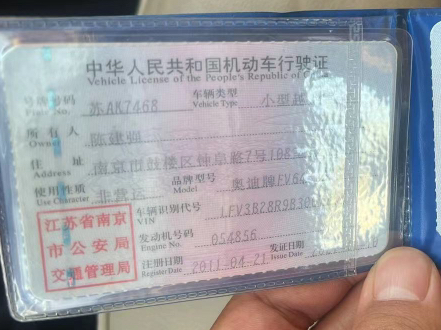 中华人民共和国机动车行驶证
Vehicle License of the People's Republic of
号牌号码 苏AK7468 车辆类型 小型
Plate No. Vehicle Type
所有人 陈建
Owner
住址 南京市鼓楼区钟阜路7号
Address
使用性质 非营运 品牌型号 奥迪牌
Use Character Model
江苏省南京
市公安局
交通管理局
车辆识别代号
VIN
发动机号码 054856
Engine No.
注册日期 2011-04-21 发证日期
Register Date Issue Date